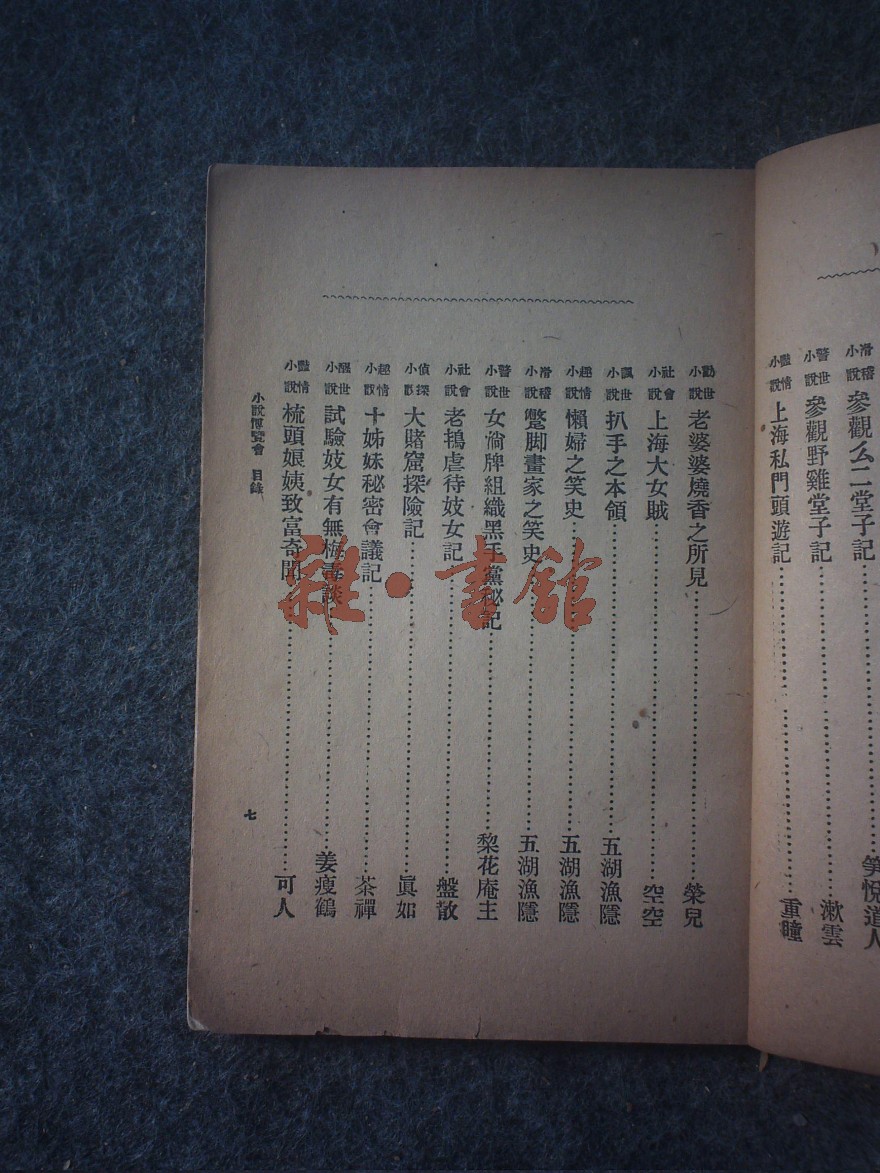 滑稽小說 參觀么二堂子記……笑悅道人
警世小說 參觀野雞堂子記……漱雲
豔情小說 上海私門頭遊記……重瞳
勸世小說 老婆婆燒香之所見……榮兒
社會小說 上海大女賊……空空
諷世小說 扒手之本領……五湖漁隱
趣情小說 懶婦之笑史……五湖漁隱
滑稽小說 蹩脚畫家之笑史……五湖漁隱
警世小說 女淌牌組織黑手黨秘記……棃花庵主
社會小說 老鴇虐待妓女記……盤散
偵探小說 大賭窟探險記……眞如
趣情小說 十姊妹秘密會議記……茶禪
醒世小說 試驗妓女有無梅毒談……姜瘦鶴
豔情小說 梳頭娘姨致富奇聞……可人
小說博覽會 目錄
七
雜·書館